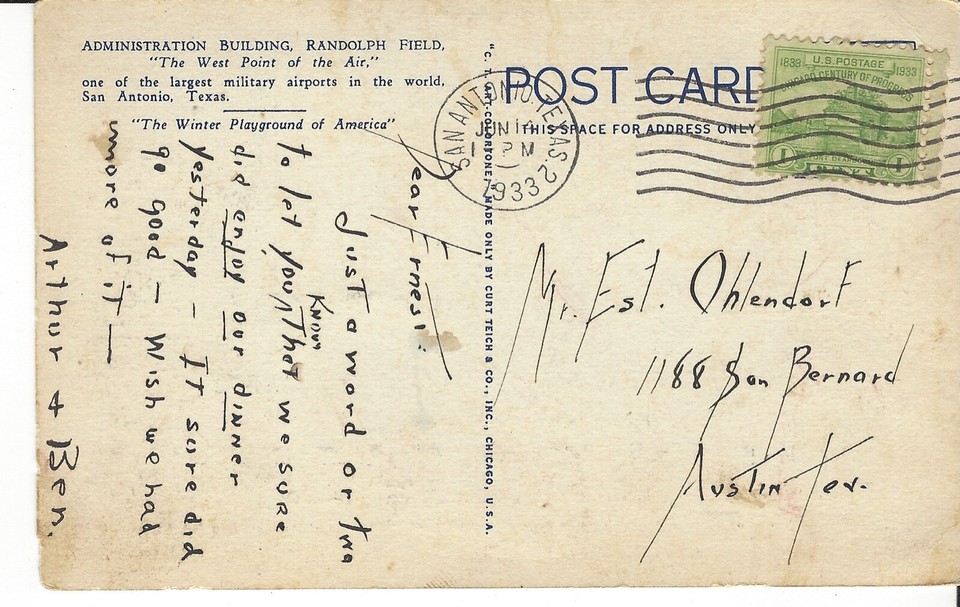 ADMINISTRATION BUILDING, RANDOLPH FIELD,
"The West Point of the Air,"
one of the largest military airports in the world,
San Antonio, Texas.
"The Winter Playground of America"
Dear Ernest:
Just a word or two
Know
to let you that we sure
did enjoy our dinner
yesterday – It sure did
go good – Wish we had
more of it –
Arthur & Ben.
"C. T. ART-COLORTONE," MADE ONLY BY CURT TEICH & CO., INC., CHICAGO, U.S.A.
POST CARD
THIS SPACE FOR ADDRESS ONLY
SAN ANTONIO, TEXAS 2
JUN
PM
1933
U.S. POSTAGE
1833 1933
CHICAGO CENTURY OF PROGRESS
FORT DEARBORN
1 1
Mr. Est. Ohlendorf
1188 San Bernard
Austin Tex.